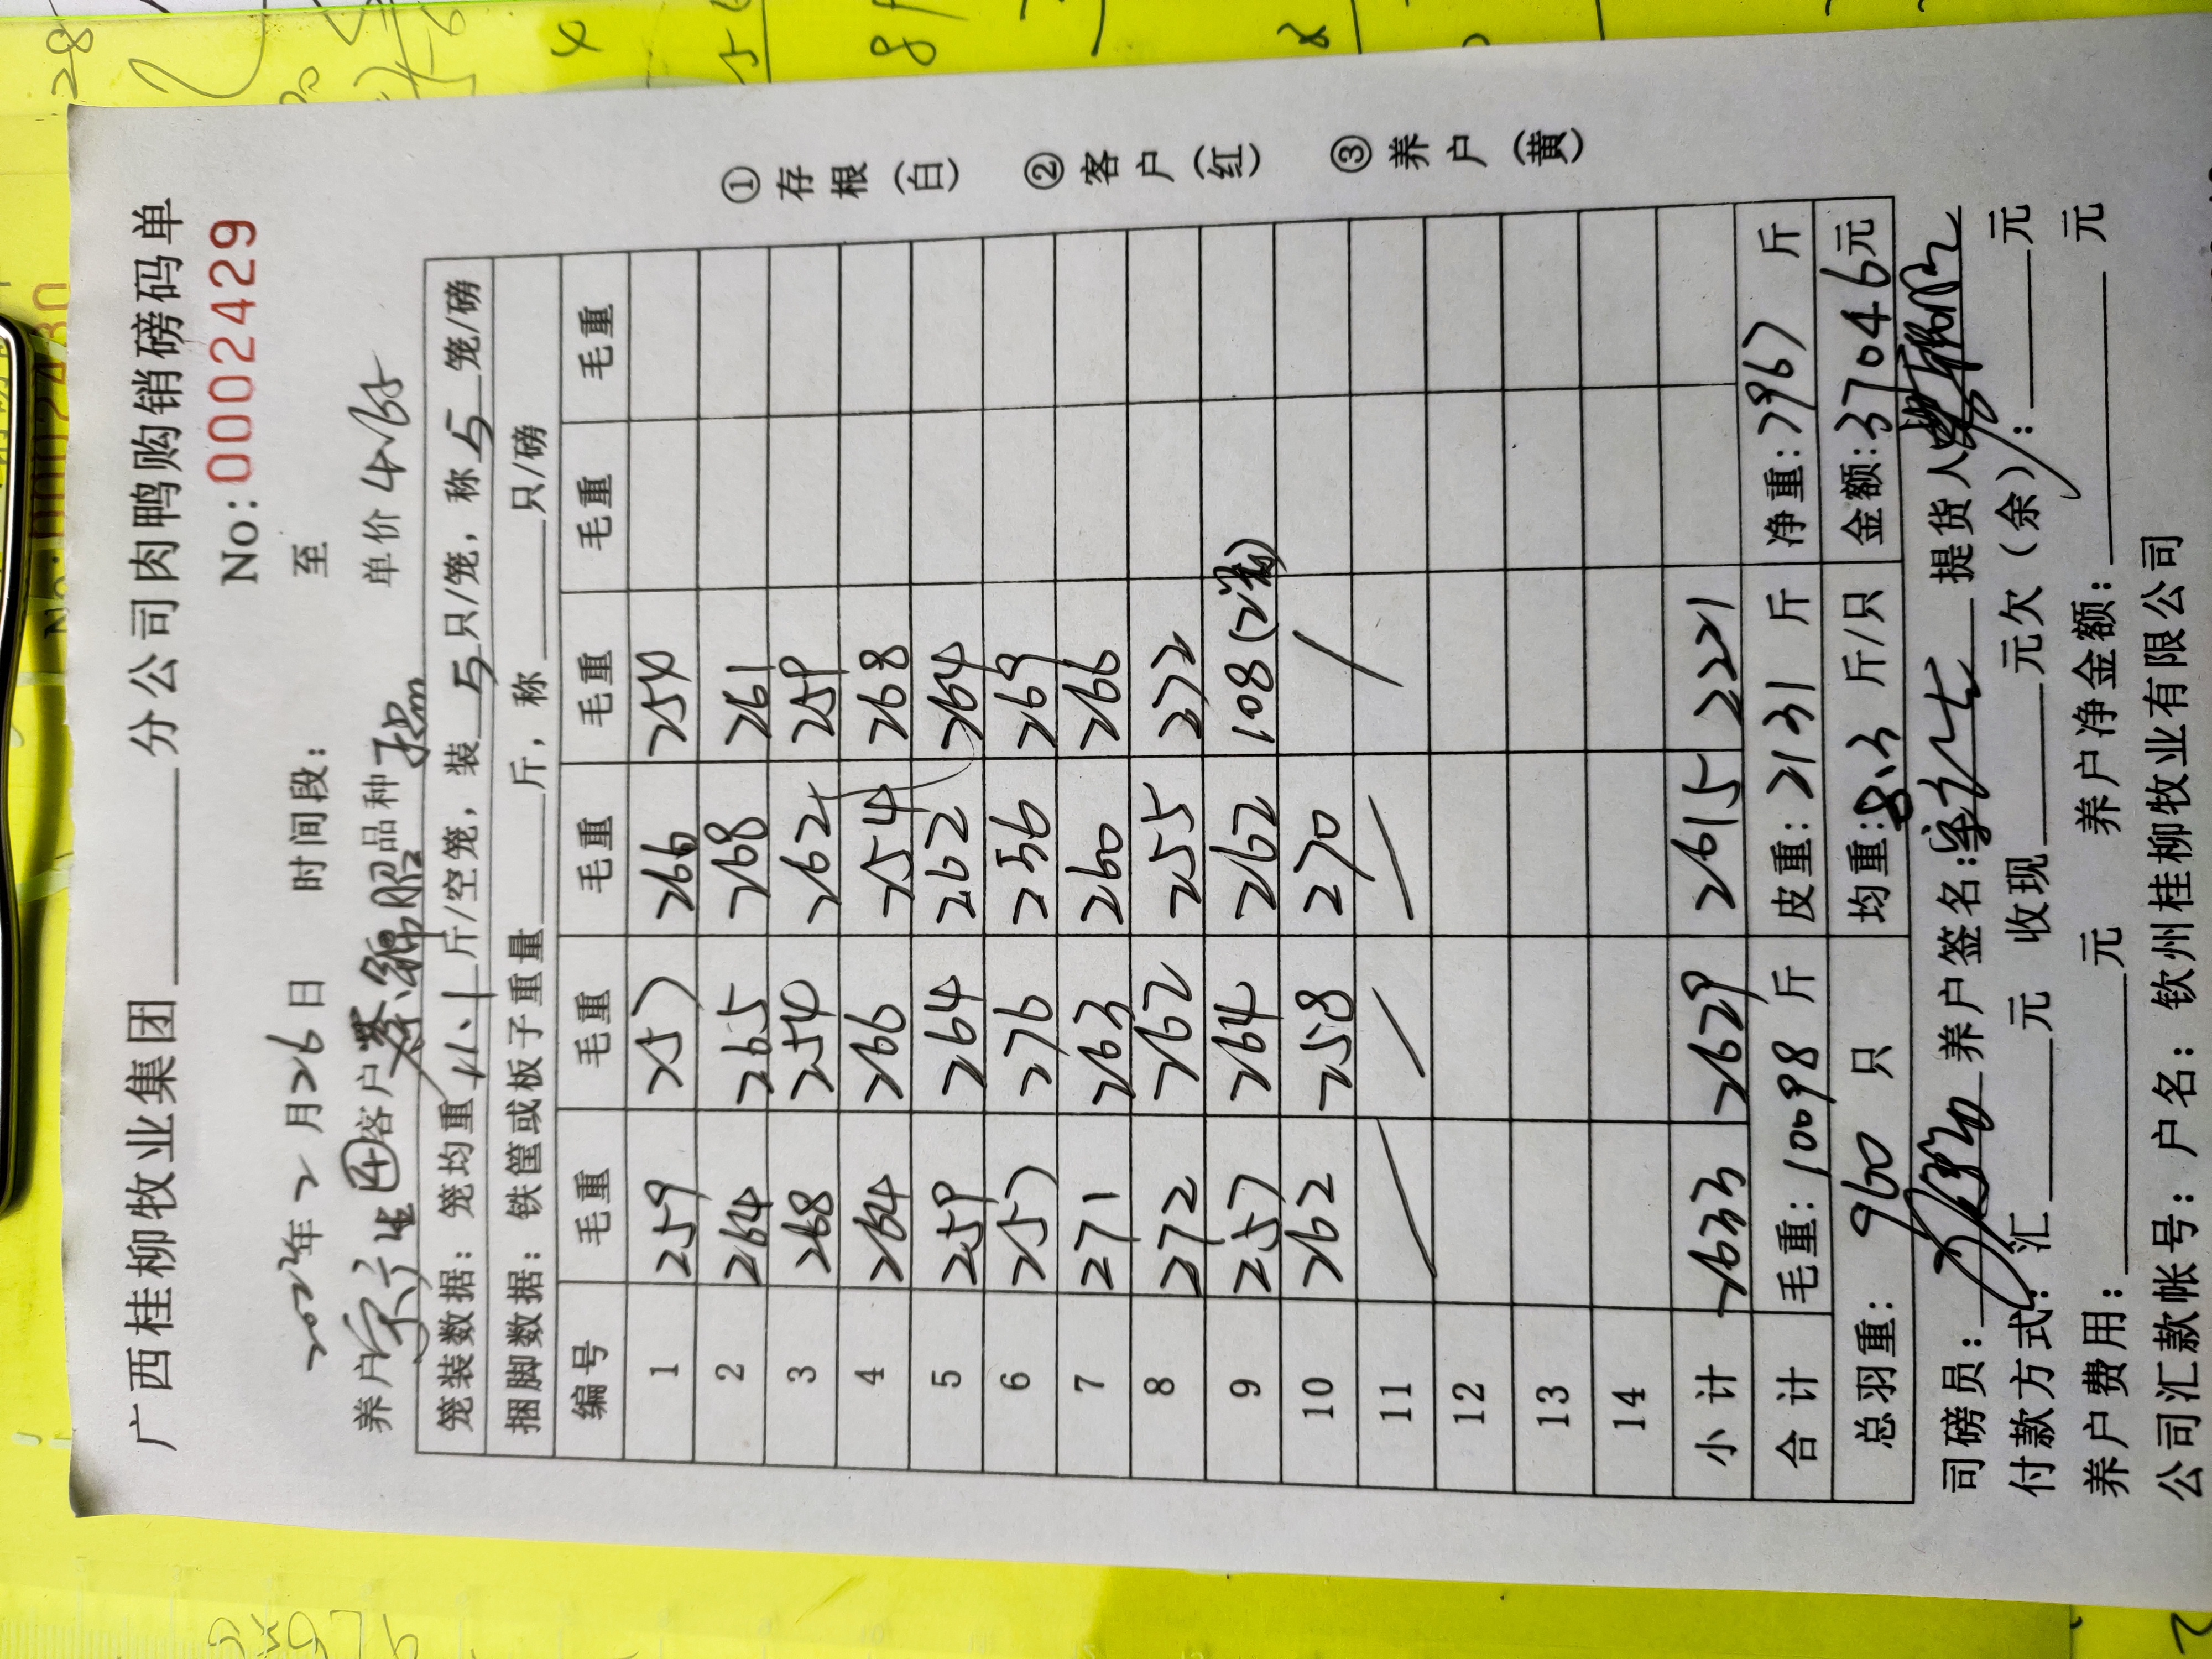 广西桂柳牧业集团______分公司肉鸭购销磅码单
No:0002429
2022年2月26日 时间段: 至
养户 客户 品种 单价4.65
笼装数据: 笼均重11.1斤/空笼, 装5只/笼, 称5笼/磅
捆脚数据: 铁筐或板子重量______斤, 称______只/磅
编号 毛重 毛重 毛重 毛重 毛重 毛重
1 259 257 266 254
2 264 265 268 261
3 268 254 262 259
4 264 266 254 268
5 259 264 262 264
6 257 276 256 269
7 271 263 260 266
8 272 262 255 272
9 257 264 262 108(2笼)
10 262 258 270 /
11 / / /
12
13
14
小计 2633 2629 2615 2221
合计 毛重: 10098 斤 皮重: 2131 斤 净重: 7967 斤
总羽重: 960 只 均重: 8.3 斤/只 金额: 37046元
司磅员: 养户签名: 提货人
付款方式: 汇______元 收现______元欠(余):______元
养户费用:______元 养户净金额:______元
公司汇款帐号: 户名: 钦州桂柳牧业有限公司
①存根(白) ②客户(红) ③养户(黄)